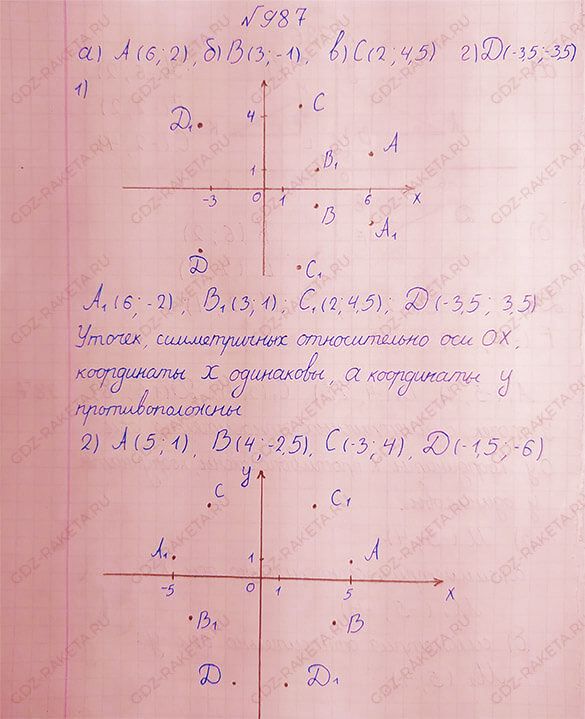 №987
а) А(6; 2), б) В(3; -1), в) С(2; 4,5) г) D(-3,5; -3,5)
1)
C
D₁ 4 A
B₁
1
-3 0 1 6 x
B
A₁
D C₁
A₁(6; -2); B₁(3; 1); C₁(2; 4,5); D(-3,5; 3,5)
У точек, симметричных относительно оси ОХ,
координаты х одинаковы, а координаты у
противоположны
2) А(5; 1), В(4; -2,5), С(-3; 4), D(-1,5; -6)
у
C C₁
A₁ 1 A
-5 0 1 5 x
B₁ B
D D₁
GDZ-RAKETA.RU